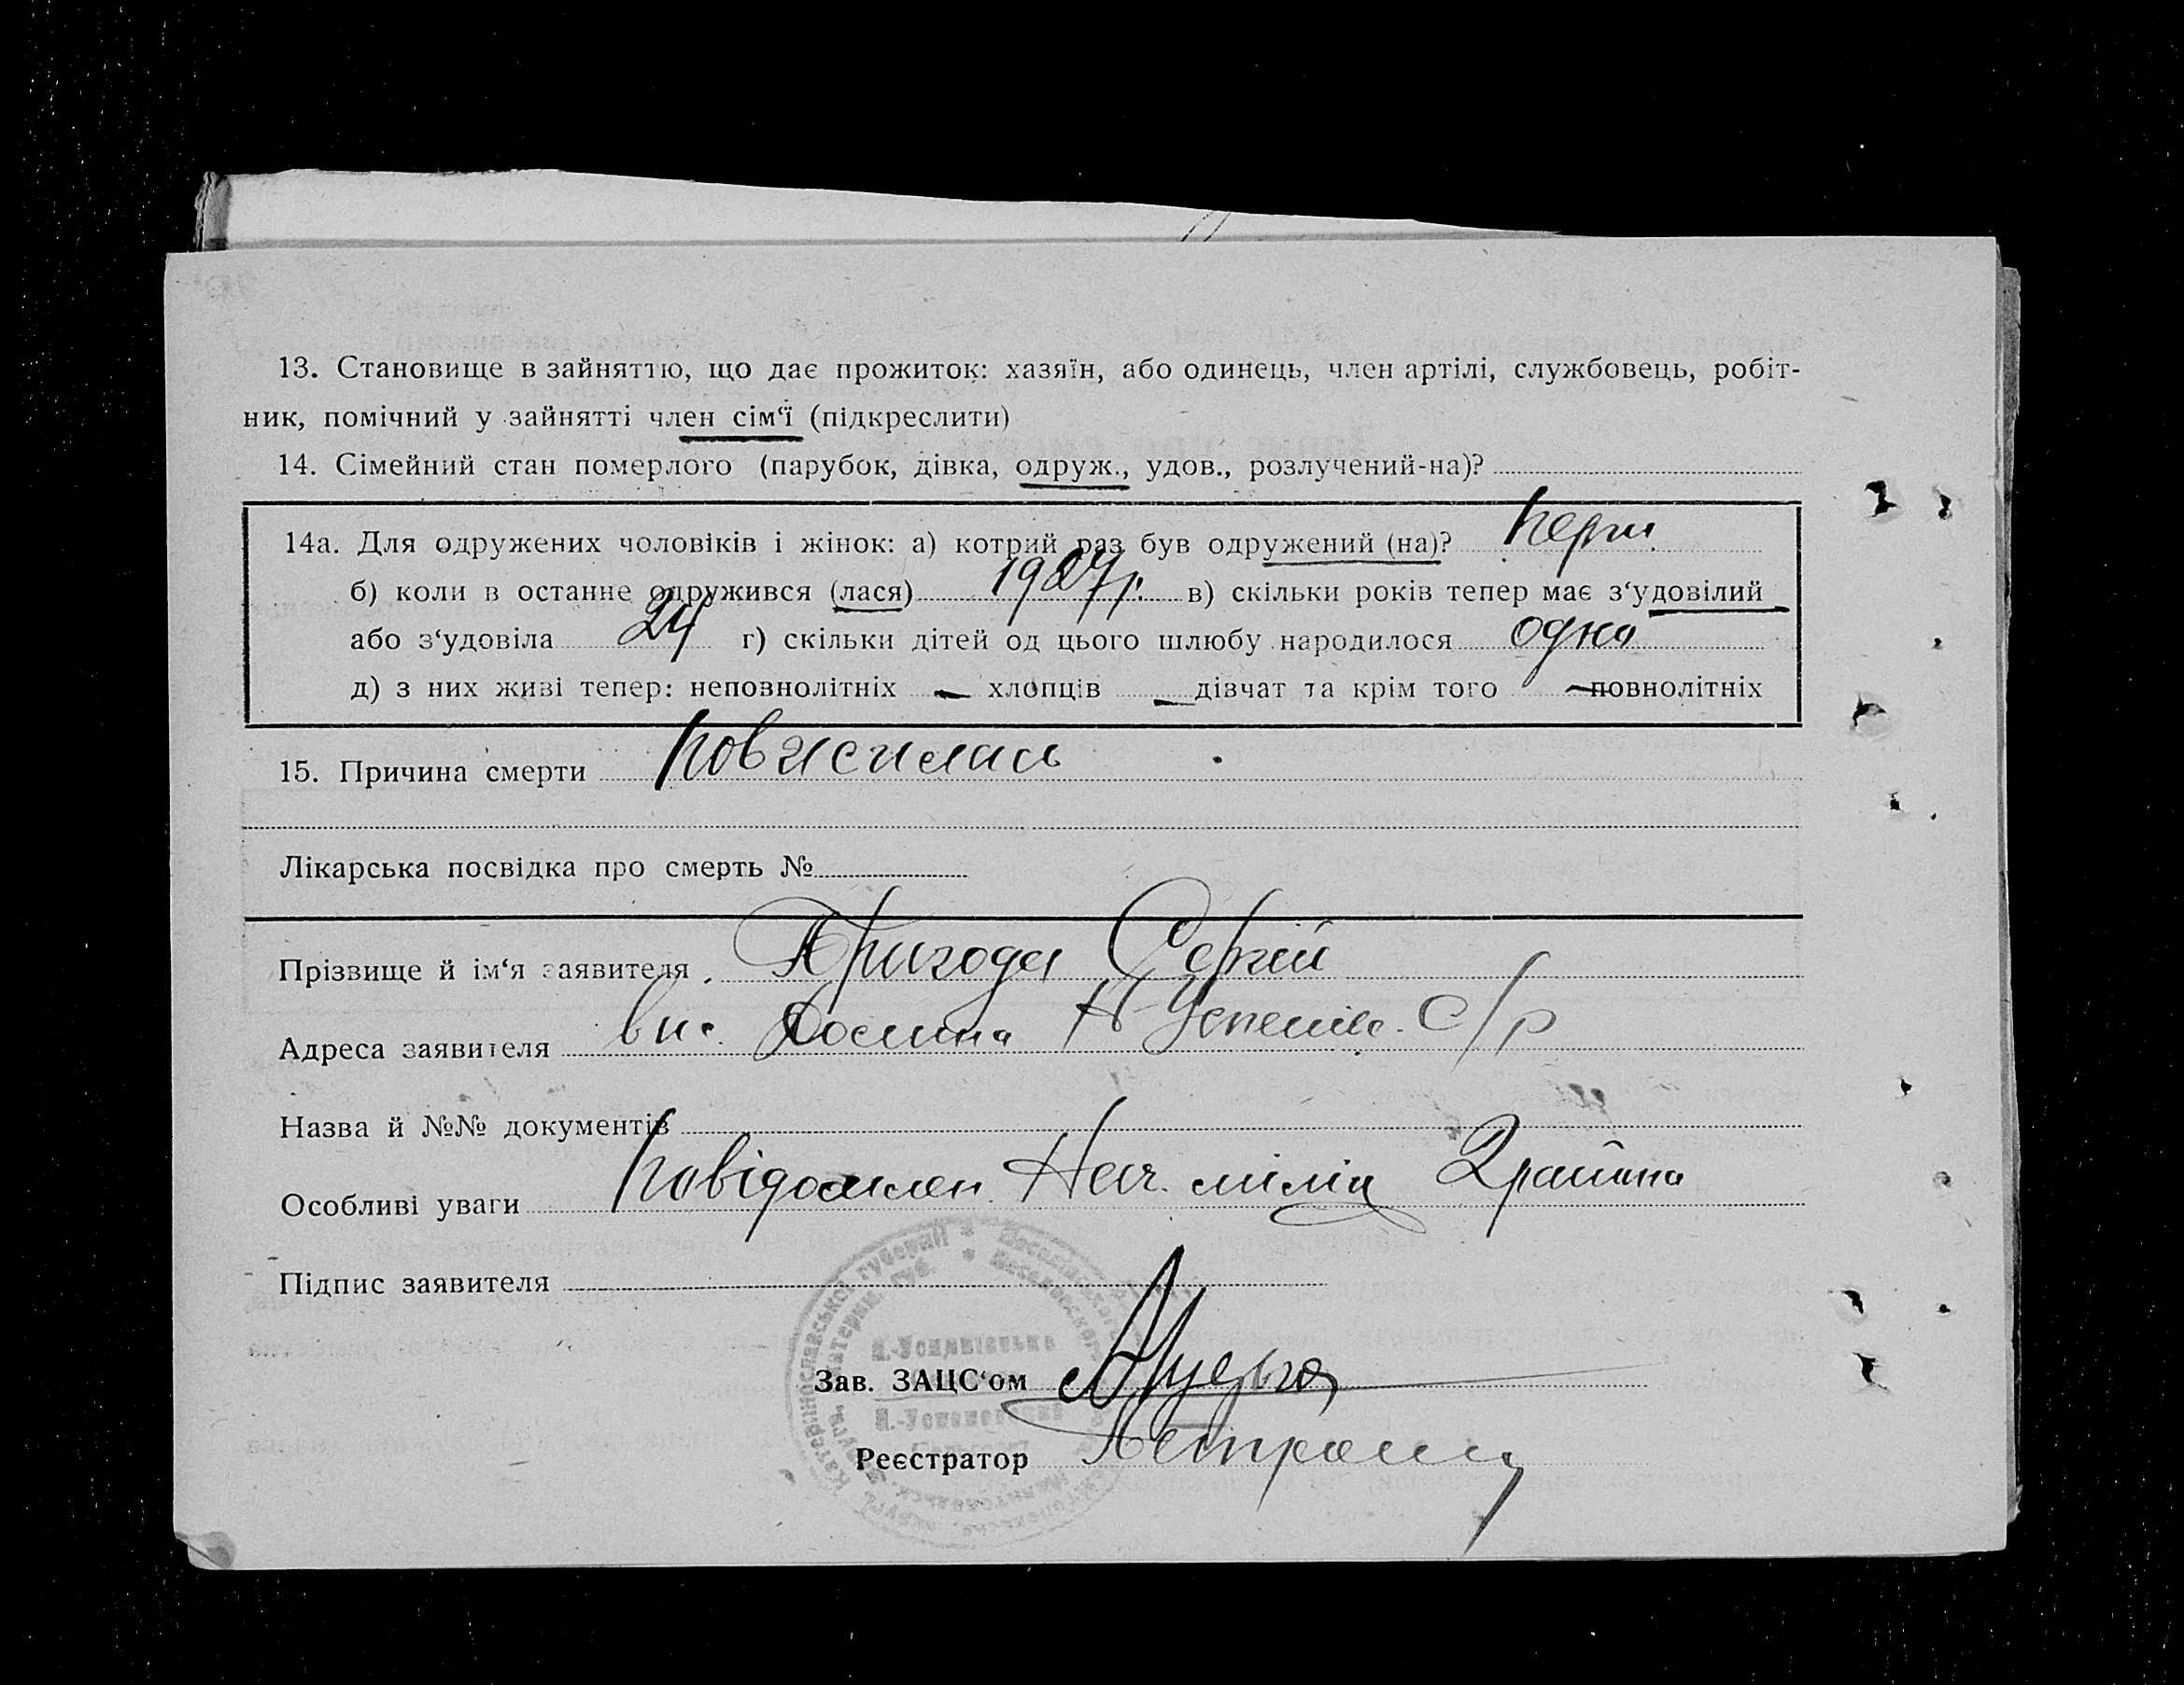 13. Становище в зайняттю, що дає прожиток: хазяїн, або одинець, член артілі, службовець, робіт-
ник, помічний у зайнятті член сім‘ї (підкреслити)
14. Сімейний стан померлого (парубок, дівка, одруж., удов., розлучений-на)?
14а. Для одружених чоловіків і жінок: а) котрий раз був одружений (на)? перш.
б) коли в останнє одружився (лася) 1927 р. в) скільки років тепер має з‘удовілий
або з‘удовіла 24 г) скільки дітей од цього шлюбу народилося одно
д) з них живі тепер: неповнолітніх — хлопців — дівчат та крім того — повнолітніх
15. Причина смерти повисилась
Лікарська посвідка про смерть №
Прізвище й ім‘я заявителя Пригода Сергій
Адреса заявителя вис. Долина Н-Успенів. С/р
Назва й №№ документів
Особливі уваги повідомлен. Нач. міліц 2 района
Підпис заявителя
Зав. ЗАЦС‘ом
Реєстратор